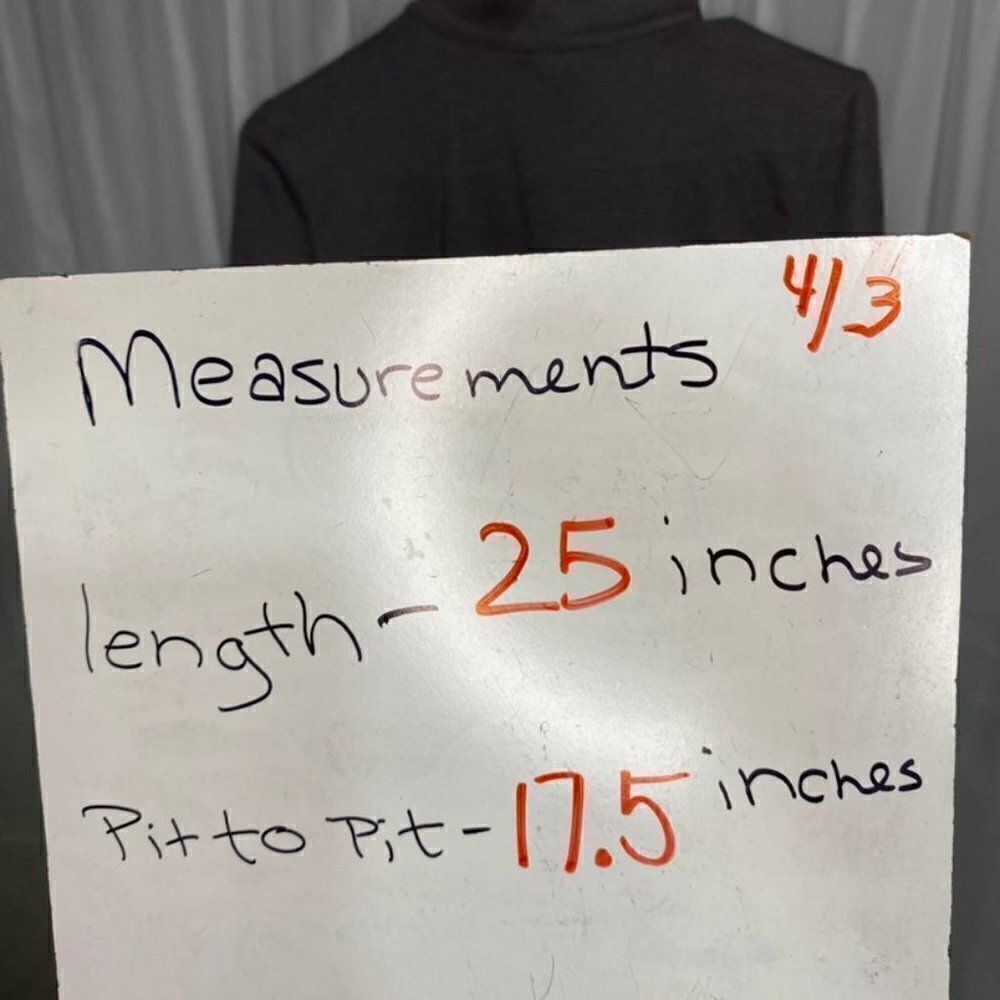 4/3
Measurements
length - 25 inches
Pit to Pit - 17.5 inches